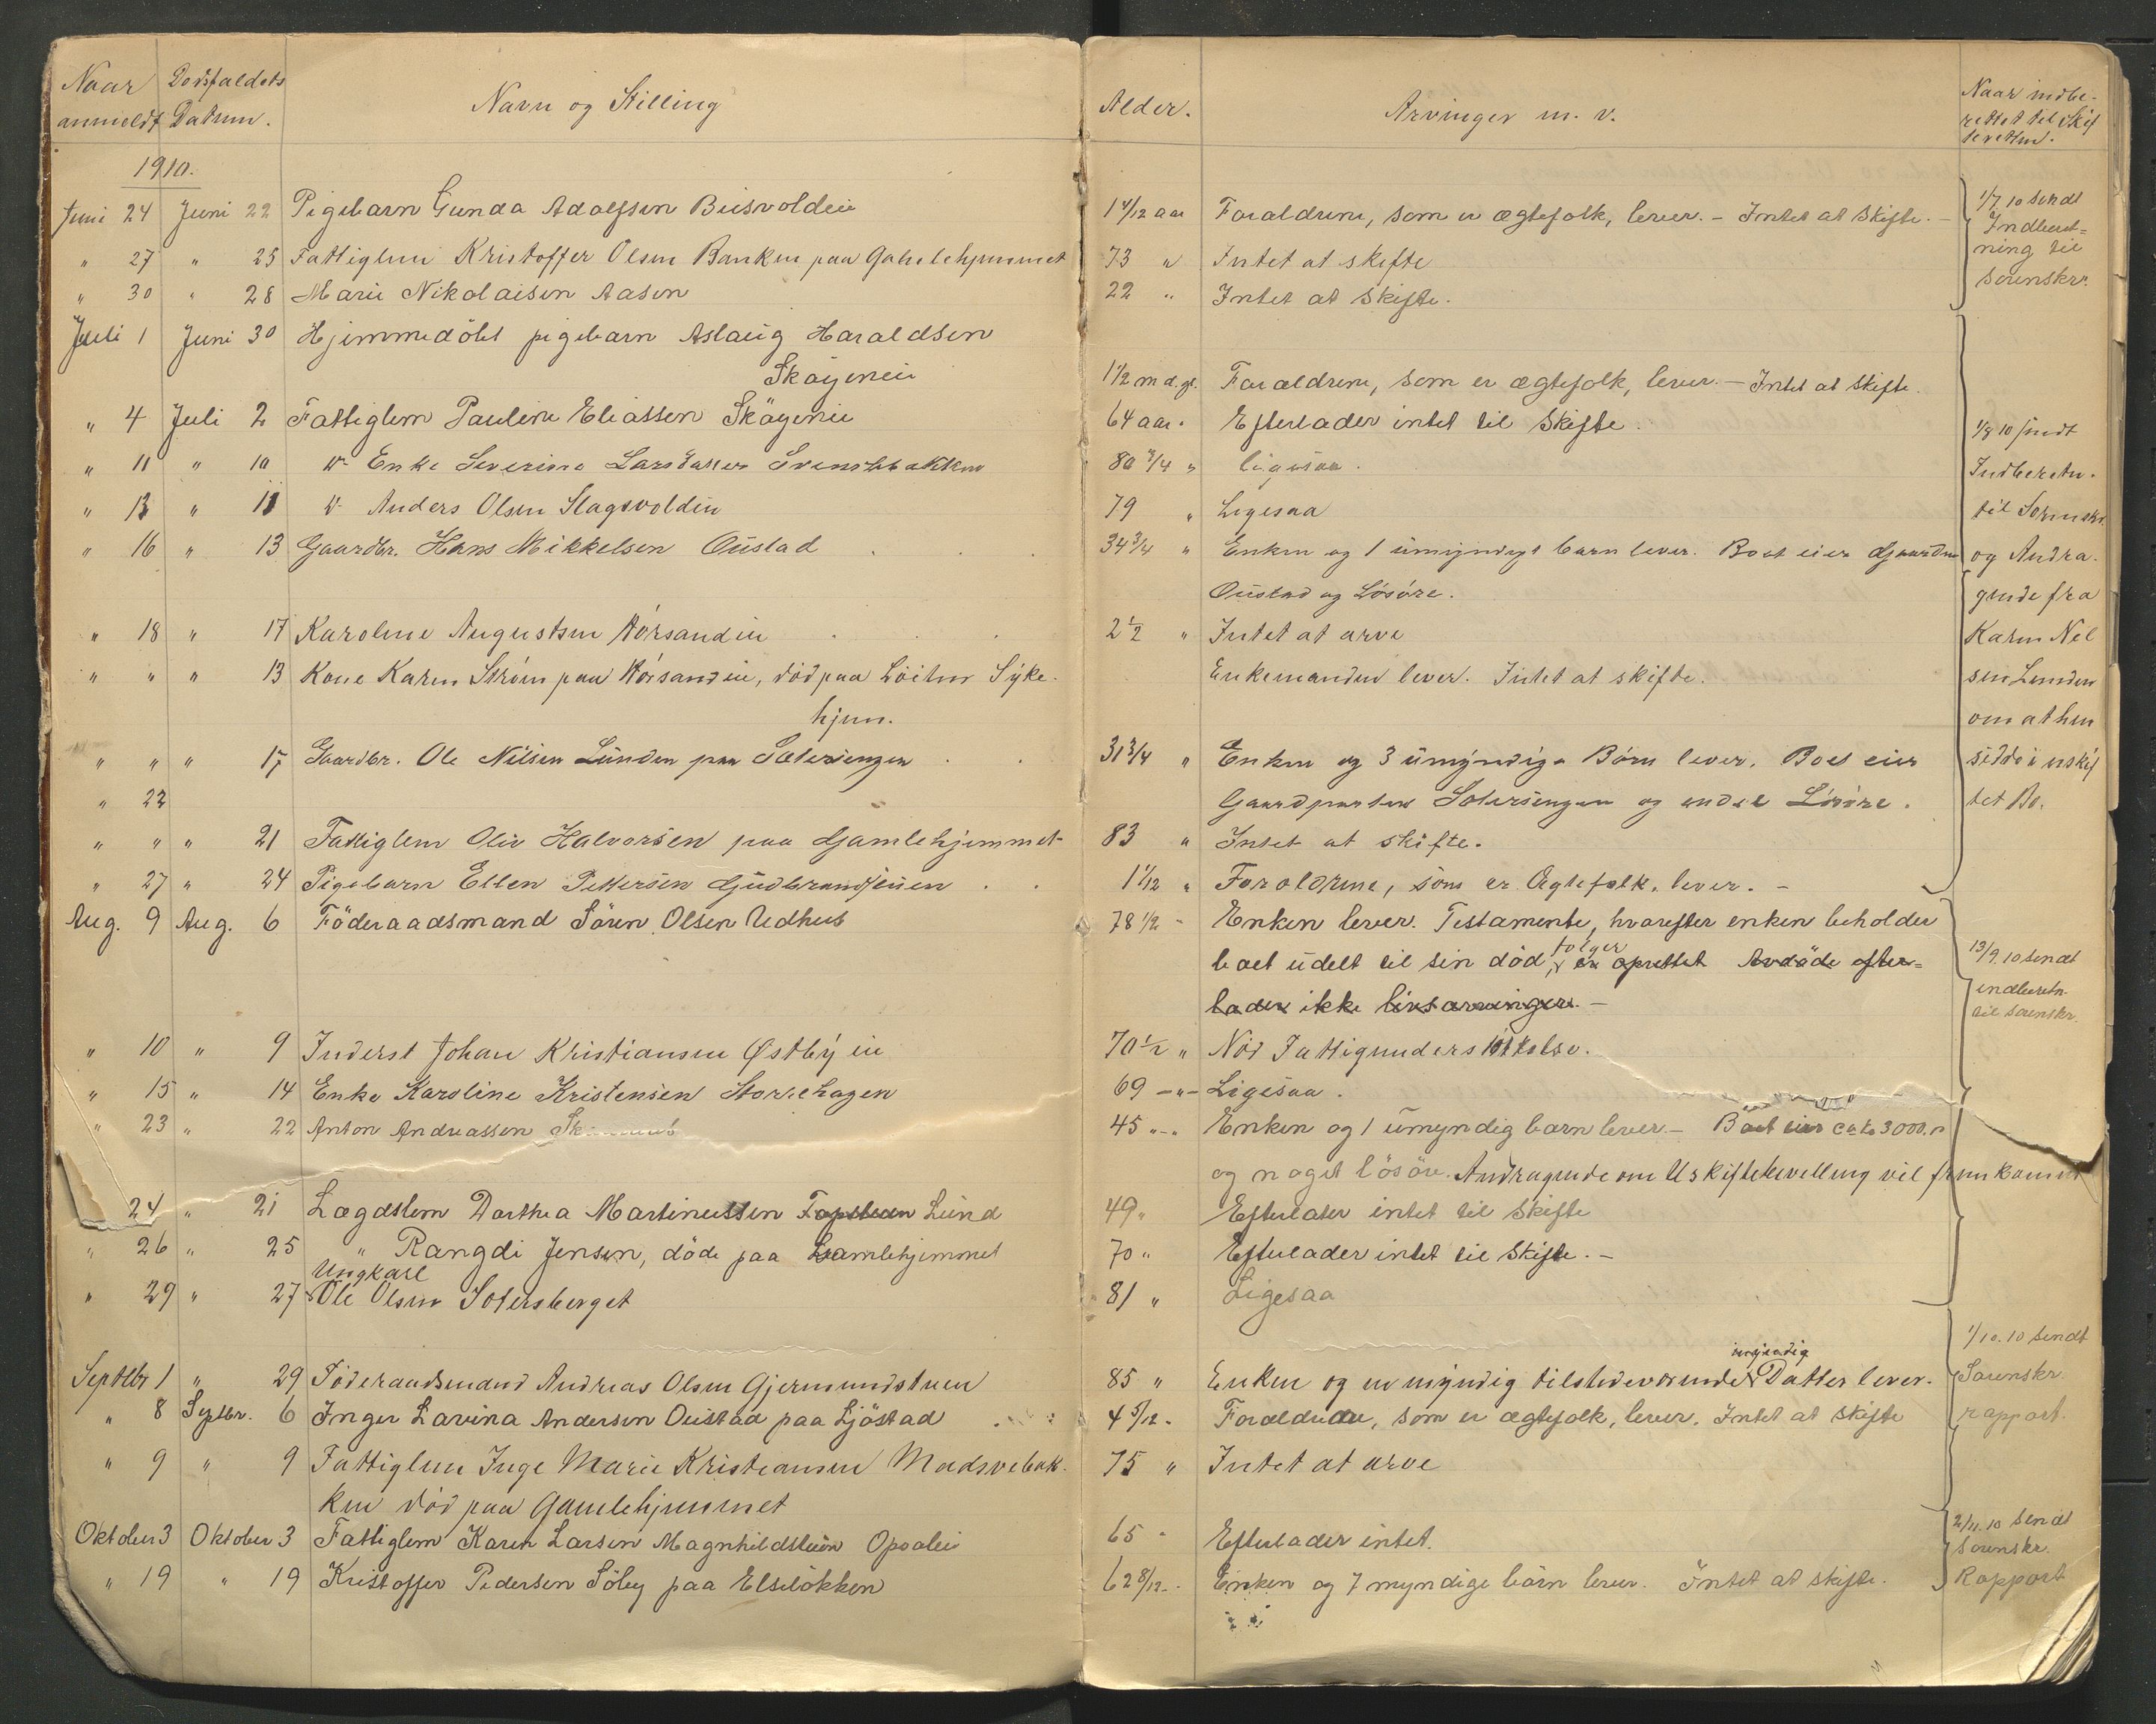 Naar anmeldt Dødsfaldets Datum. Navn og Stilling Alder. Arvinger m. v. Naar indbe-
rettet til Skif
teretten.
1910.
Juni 24 Juni 22 Pigebarn Gunda Adolfsen 1 4/12 aar Forældrene, som er ægtefolk, lever. - Intet at skifte. - 1/7 10 sendt
Indberet=
" 27 " 25 Fattiglem Kristoffer Olsen Banken paa Gamlehjemmet 73 " Intet at skifte ning til
" 30 " 28 Marie Nikolaisen Aasen 22 " Intet at skifte. sorenskr.
Juli 1 Juni 30 Hjemmedöbt pigebarn Aslaug Haraldsen
Skögeneie 1 1/2 md. gl. Forældrene, som er ægtefolk, lever. - Intet at skifte.
" 4 Juli 2 Fattiglem Pauline Eliassen Skögeneie 64 aar. Efterlader intet til Skifte. 1/8 10 sendt
" 11 " 10 Enke Severine Larsdatter 80 3/4 " ligesaa. Indberetn.
" 13 " 11 Anders Olsen Slagsvolden 79 " Ligesaa til Sorenskr.
" 16 " 13 Gaardbr. Hans Mikkelsen Oustad 34 3/4 " Enken og 1 umyndigt barn lever. Boet eier Gaarden og Andra-
Oustad og Lösöre. gende fra
" 18 " 17 Karoline Augustsen 2 1/2 " Intet at arve Karen Nel
" " " 13 Kone Karen Ström paa död paa Löiten Syke- Enkemanden lever. Intet at skifte. sen Lunden
hjem. om at hen
" " " 17 Gaardbr. Ole Nilsen Lunden paa Sætersengen 31 3/4 " Enken og 3 umyndige Börn lever. Boet eier sidde i uskif
" 22 Gaardparten Sotersengen og endel Lösöre. tet Bo.
" " " 21 Fattiglem Oliv Halvorsen paa Gamlehjemmet 83 " Intet at skifte.
" 27 " 24 Pigebarn Ellen Pettersen 1 1/12 " Foroldrene, som er Ægtefolk, lever. -
Aug. 9 Aug. 6 Föderaadsmand Sören Olsen Udhus 78 1/2 " Enken lever. Testamente, hvorefter enken beholder
boet udelt til sin död, følger er oprettet Avdöde efter= 13/9. 10 sendt
lader ikke livsarvinger. - indberetn.
til sorenskr.
" 10 " 9 Inderst Johan Kristiansen Østbyeie 70 1/2 " Nöd Fattigunderstöttelse.
" 15 " 14 Enke Karoline Kristensen Storuhagen 69 -"- Ligesaa.
" 23 " 22 Anton Andreassen 45 -"- Enken og 1 umyndig barn lever. - Boet eier ca kr 3000.
og noget lösöre. Andragende om Uskiftebevilling vil fremkomme
24 " 21 Lægdslem Dorthea Martinussen Lund 49 " Efterlater intet til Skifte
" 26 " 25 " Rangdi Jensen, döde paa Gamlehjemmet 70 " Efterlader intet til Skifte. -
Ungkarl
" 29 " 27 Ole Olsen Sotersberget 81 " Ligesaa
1/10. 10 sendt
Septbr 1 " 29 Föderaadsmand Andreas Olsen Gjermundstuen 85 " Enken og en myndig tilstedeværende Datter lever. Sorenskr.
" 8 Septbr. 6 Inger Lavina Andersen Oustad paa Ljöstad 4 5/12 " Forældrene, som er ægtefolk, lever. Intet at skifte rapport.
" 9 " 9 Fattiglem Inge Marie Kristiansen Madsvebak- 75 " Intet at arve
ken död paa Gamlehjemmet
Oktober 3 Oktober 3 Fattiglem Karen Larsen Magnhildstuen Opsalei 65 " Efterlader intet. 2/11. 10 sendt
Sorenskr.
" 19 " 19 Kristoffer Pedersen Söby paa Elselökken 62 8/12 " Enken og 7 myndige börn lever. Intet at skifte. Rapport